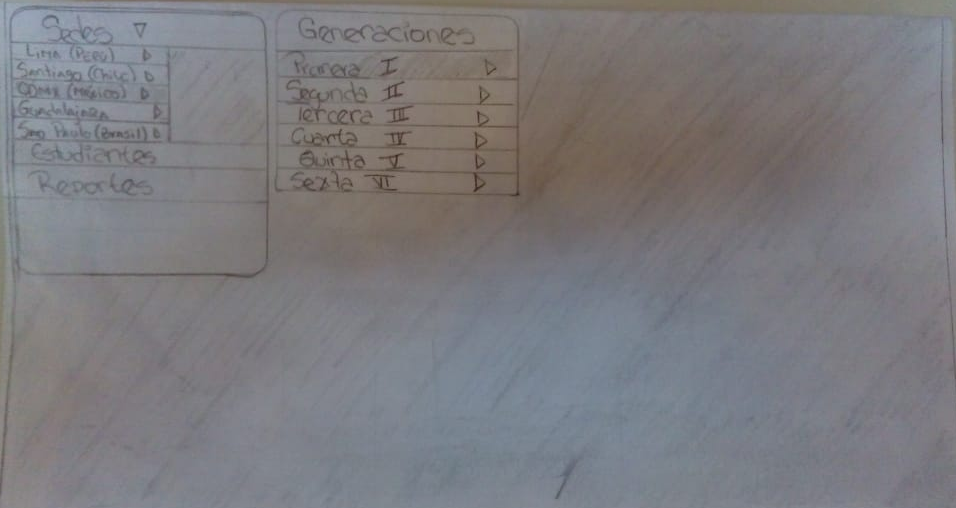 Sedes
Lima (Perú)
Santiago (Chile)
CDMX (México)
Guadalajara
Sao Paulo (Brasil)
Estudiantes
Reportes
Generaciones
Primera I
Segunda II
Tercera III
Cuarta IV
Quinta V
Sexta VI